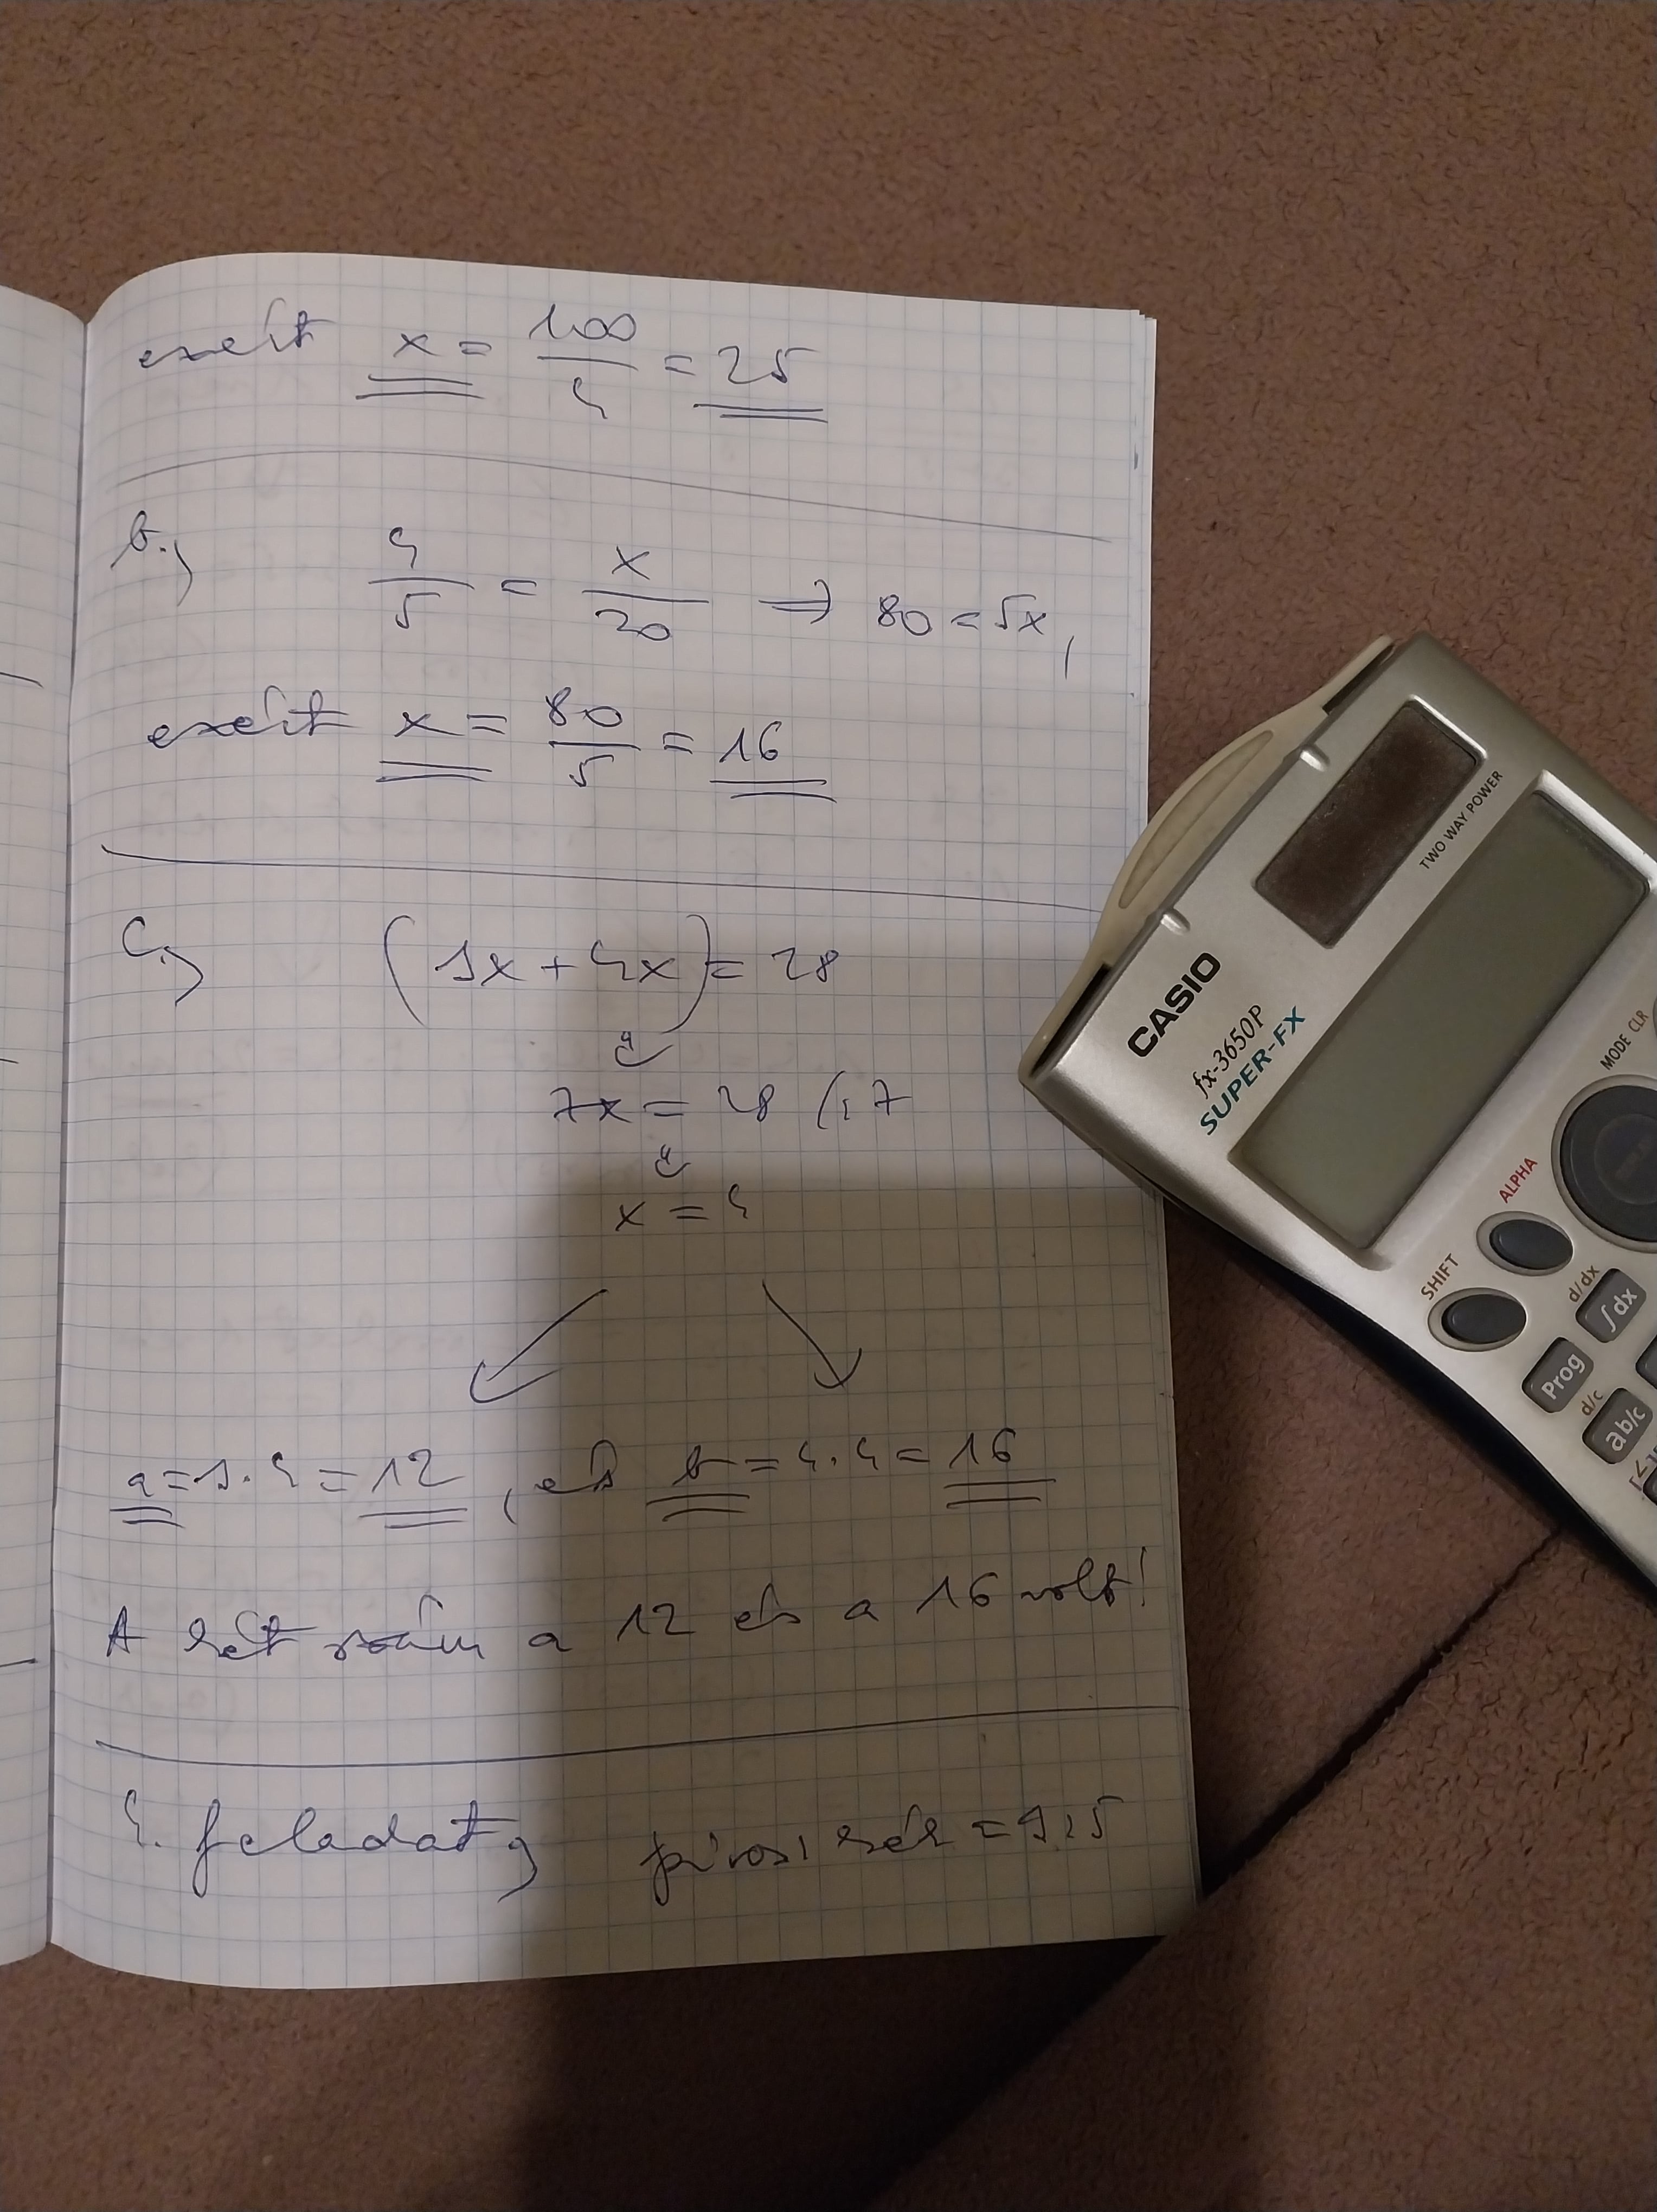 ezért x = 100/4 = 25
b.)
4/5 = x/20 ⇒ 80 = 5x,
ezért x = 80/5 = 16
c.)
(3x + 4x) = 28
7x = 28 /:7
x = 4
a = 3·4 = 12, és b = 4·4 = 16
A két szám a 12 és a 16 volt!
4. feladat,
piros: kék =
CASIO
fx-3650P
SUPER-FX
TWO WAY POWER
MODE CLR
ALPHA
SHIFT
d/dx
∫dx
Prog
d/c
ab/c